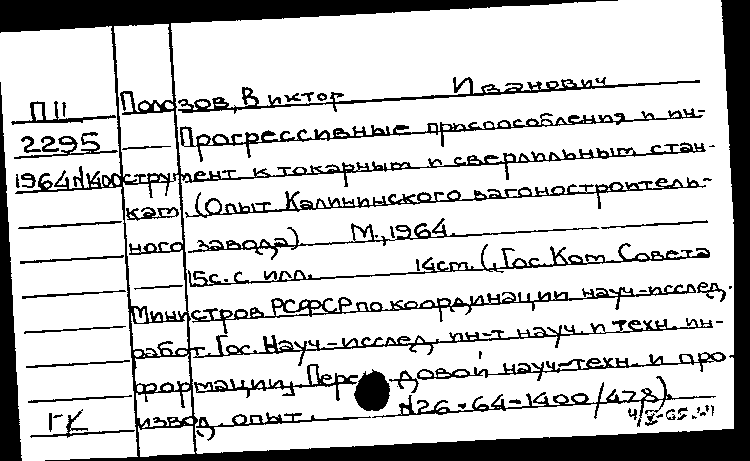 П11
2295
1964/N1400
Полозов, Виктор Иванович
Прогрессивные приспособления и ин-
струмент к токарным и сверлильным стан-
кам. (Опыт Калининского вагоностроитель-
ного завода). М., 1964.
15с. с илл. 14см. (Гос. Ком. Совета
Министров РСФСР по координации науч-исслед.
работ. Гос. Науч-исслед. ин-т науч. и техн. ин-
формации. Передовой науч-техн. и про-
извод. опыт. N26-64-1400/478).
ГК